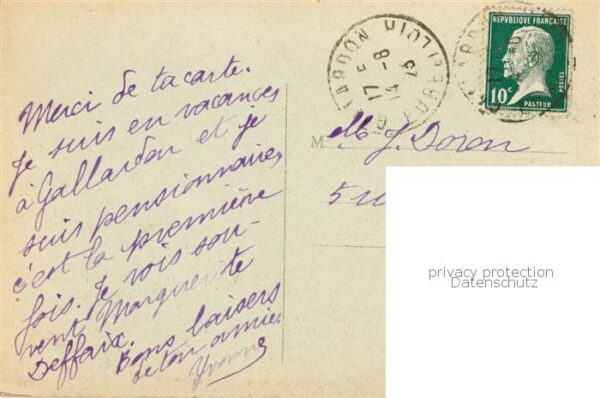 Merci de ta carte.
Je suis en vacances
à Gallardon et je
suis pensionnaire,
c'est la première
fois. Je vois sou-
vent Marguerite
Deffaix.
Bons baisers
de ton amie.
Yvonne
GALLARDON
EURE ET LOIR
17 5
8-
REPUBLIQUE FRANÇAISE
POSTES
10c
PASTEUR
M
Mlle J. Doren
5
privacy protection
Datenschutz